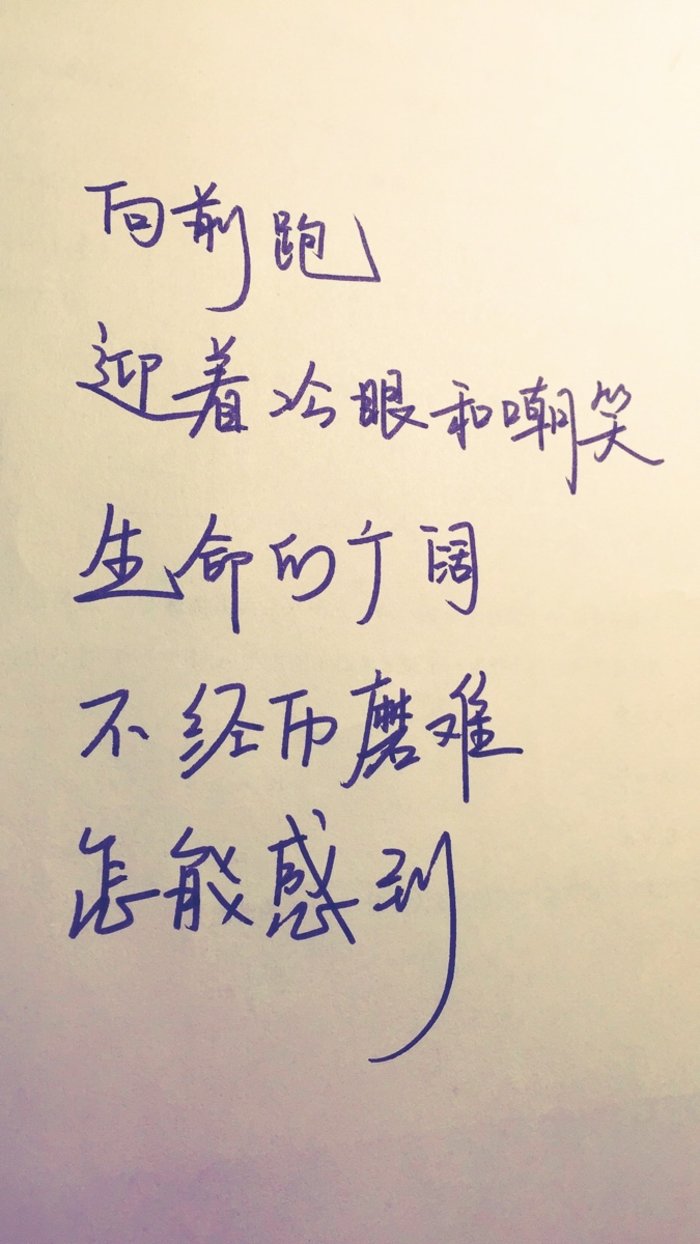 向前跑
迎着冷眼和嘲笑
生命的广阔
不经历磨难
怎能感到